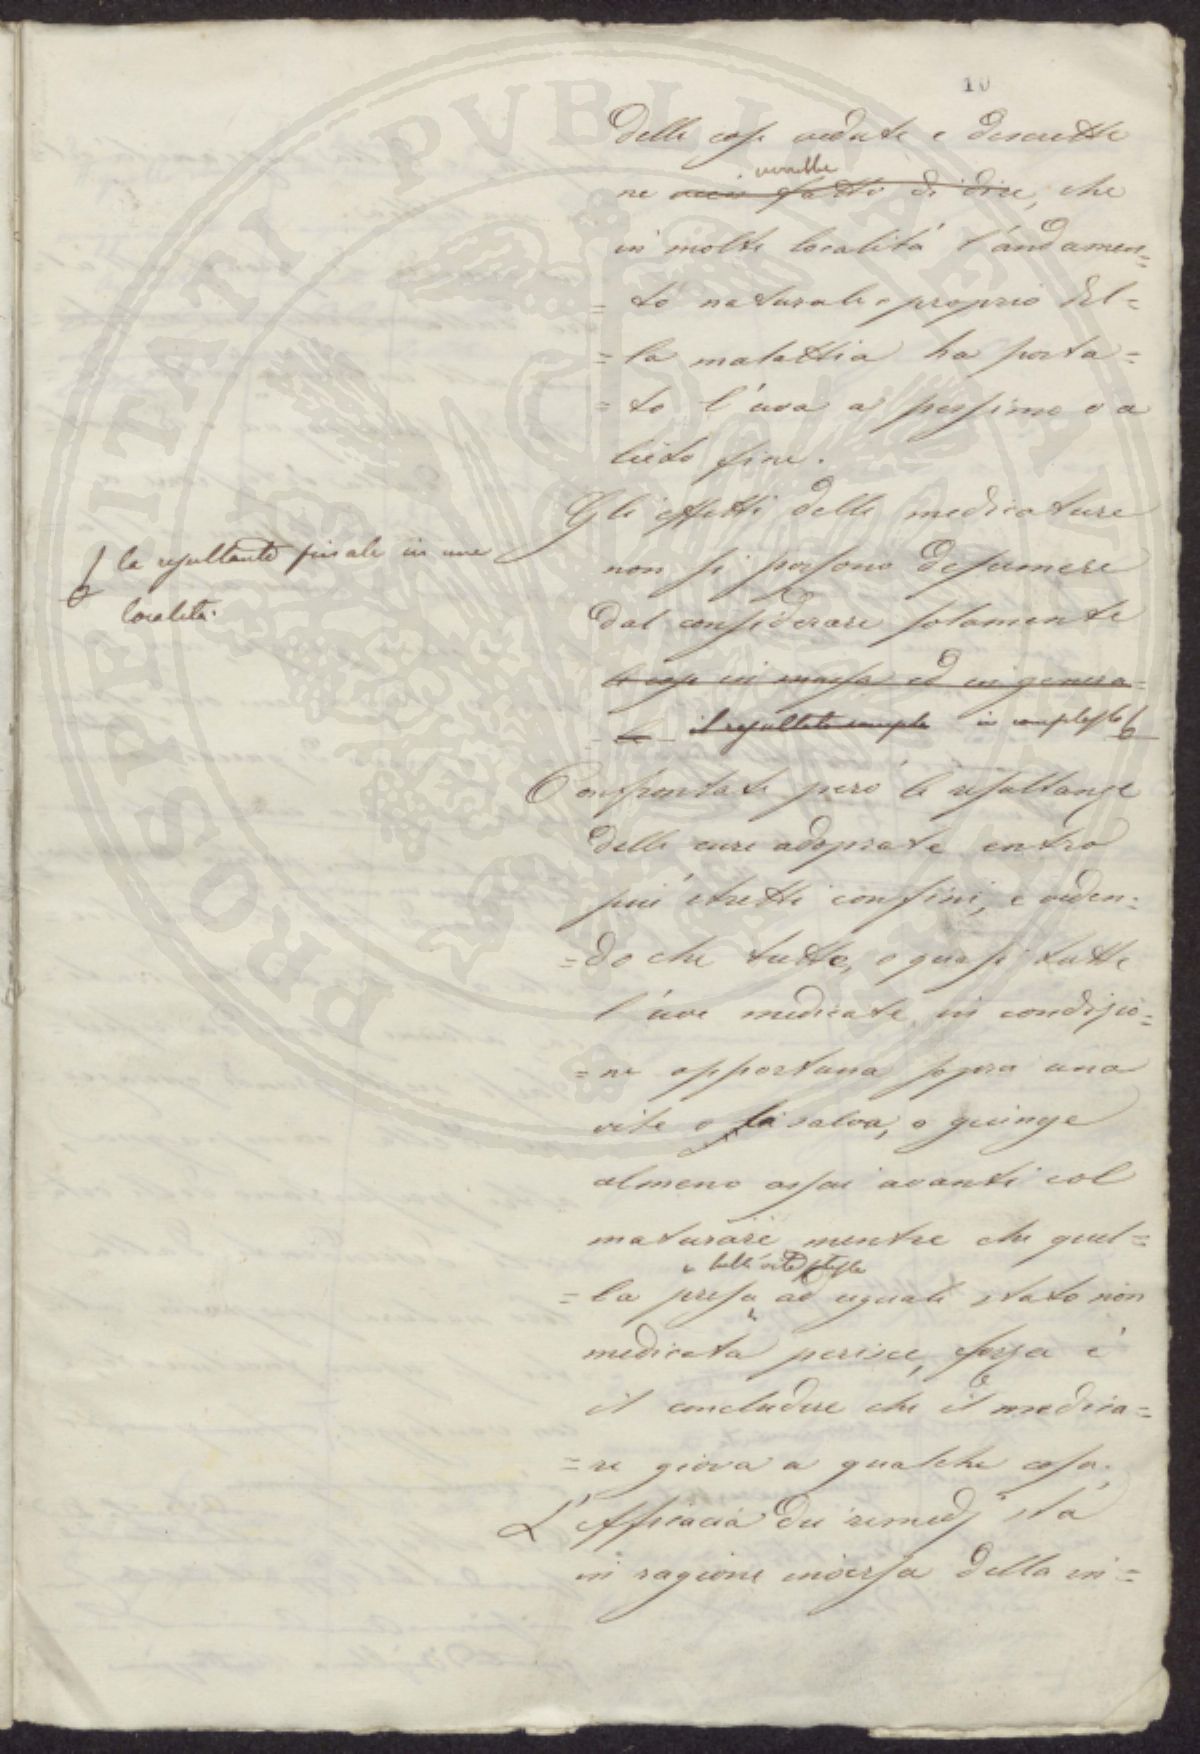 10
Delle cose vedute e descritte
verrebbe
ne fatto di dire, che
in molte località l'andamen=
=to naturale e proprio del=
=la malattia ha porta=
=to l'uva a pessimo o a
lieto fine.
Gli effetti delle medicature
non si possono desumere
dal considerare solamente
le cose in massa ed in genera=
=le il resultato in complesso
la resultante finale in una
località.
Confrontate però le resultanze
delle cure adoprate entro
più stretti confini, e veden=
=do che tutte, o quasi tutte
l'uve medicate in condizio=
=ne opportuna sopra una
vite o si salva, o giunge
almeno assai avanti col
maturare mentre che quel=
della vite stessa
=la presa ad uguale stato non
medicata perisce, forza è
il concludere che il medica=
=re giova a qualche cosa.
L'efficacia dei rimedj stà
in ragione inversa della in=
PROSPERITATI PVBLICAE